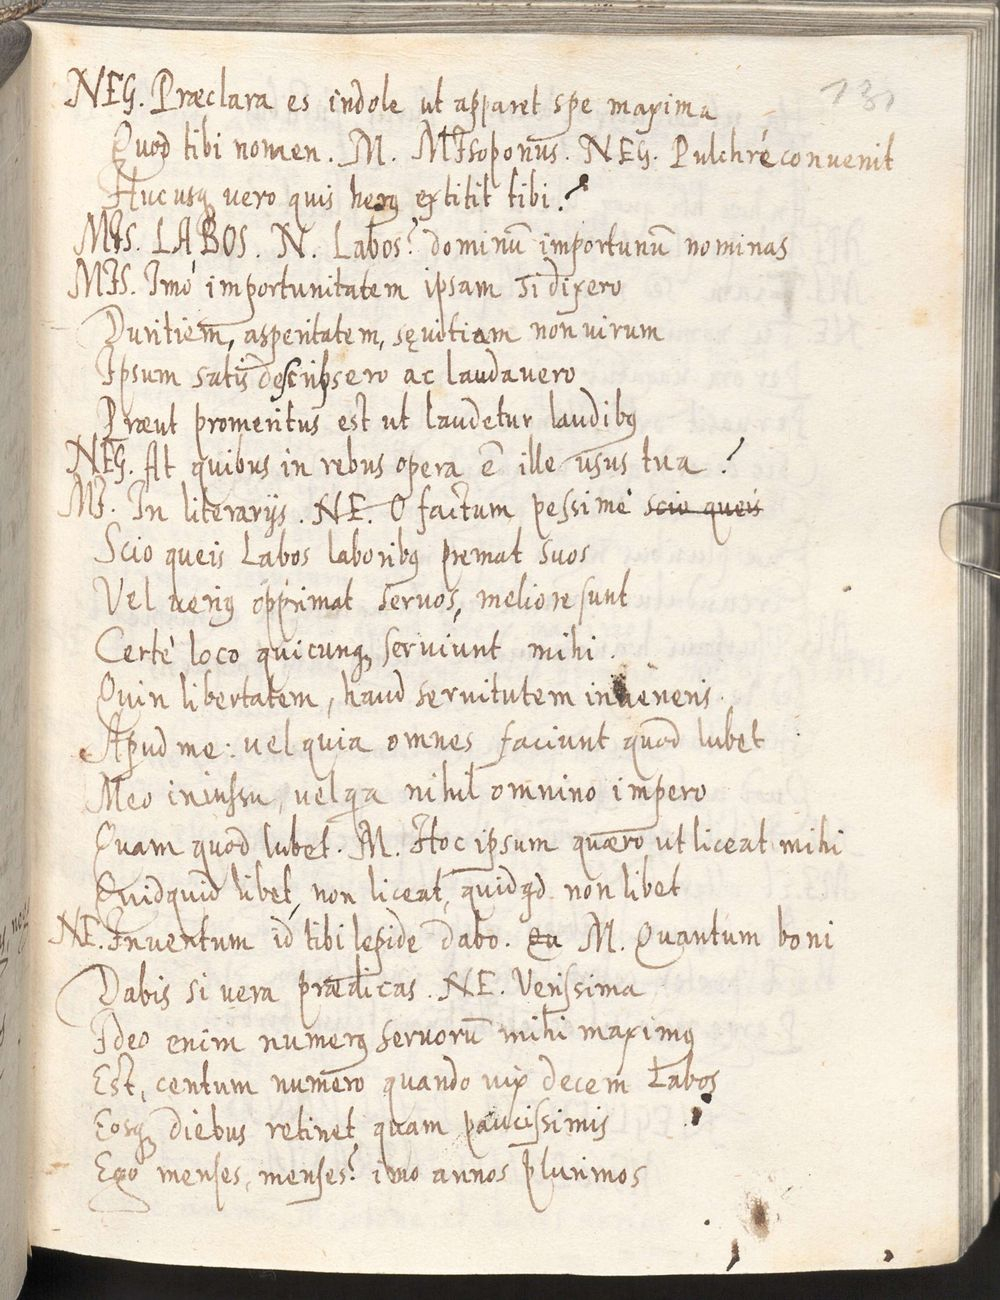 131
NEG. Præclara es indole ut apparet spe maxima
Quod tibi nomen. M. MISoponus. NEG. Pulchré convenit
Hucusq; vero quis herꝰ extitit tibi?
MIS. LABOS. N. Labos? dominū importunū nominas
MIS. Imó importunitatem ipsam si dixero
Duritiem, asperitatem, sęvitiam non virum
Ipsum satis descripsero ac laudavero
Præut promeritus est ut laudetur laudibꝰ
NEG. At quibus in rebus opera ē ille usus tua?
MI. In literarijs. NE. O factum pessimé scio queis
Scio queis Labos laboribꝰ premat suos
Vel veriꝰ opprimat servos, meliore sunt
Certé loco quicunq; serviunt mihi.
Quin libertatem, haud servitutem inveneris.
Apud me: vel quia omnes faciunt quod lubet
Meo iniussu, vel qa nihil omnino impero
Quam quod lubet. M. Hoc ipsum quæro ut liceat mihi
Quidquid libet, non liceat, quidqd non libet
NE. Inventum id tibi lepide dabo. M. Quantum boni
Dabis si vera prædicas. NE. Verissima
Ideo enim numerꝰ servorū mihi maximꝰ
Est, centum numero quando vix decem Labos
Eosq; diebus retinet quam paucissimis
Ego menses, menses? imo annos plurimos